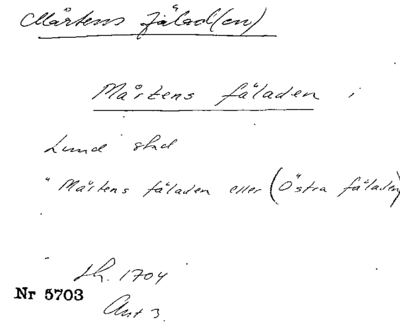 Mårtens fälad(en)
Mårtens fäladen i
Lund stad
"Mårtens fäladen eller (Östra fäladen
h. 1704
Nr 5703
Ant 3.